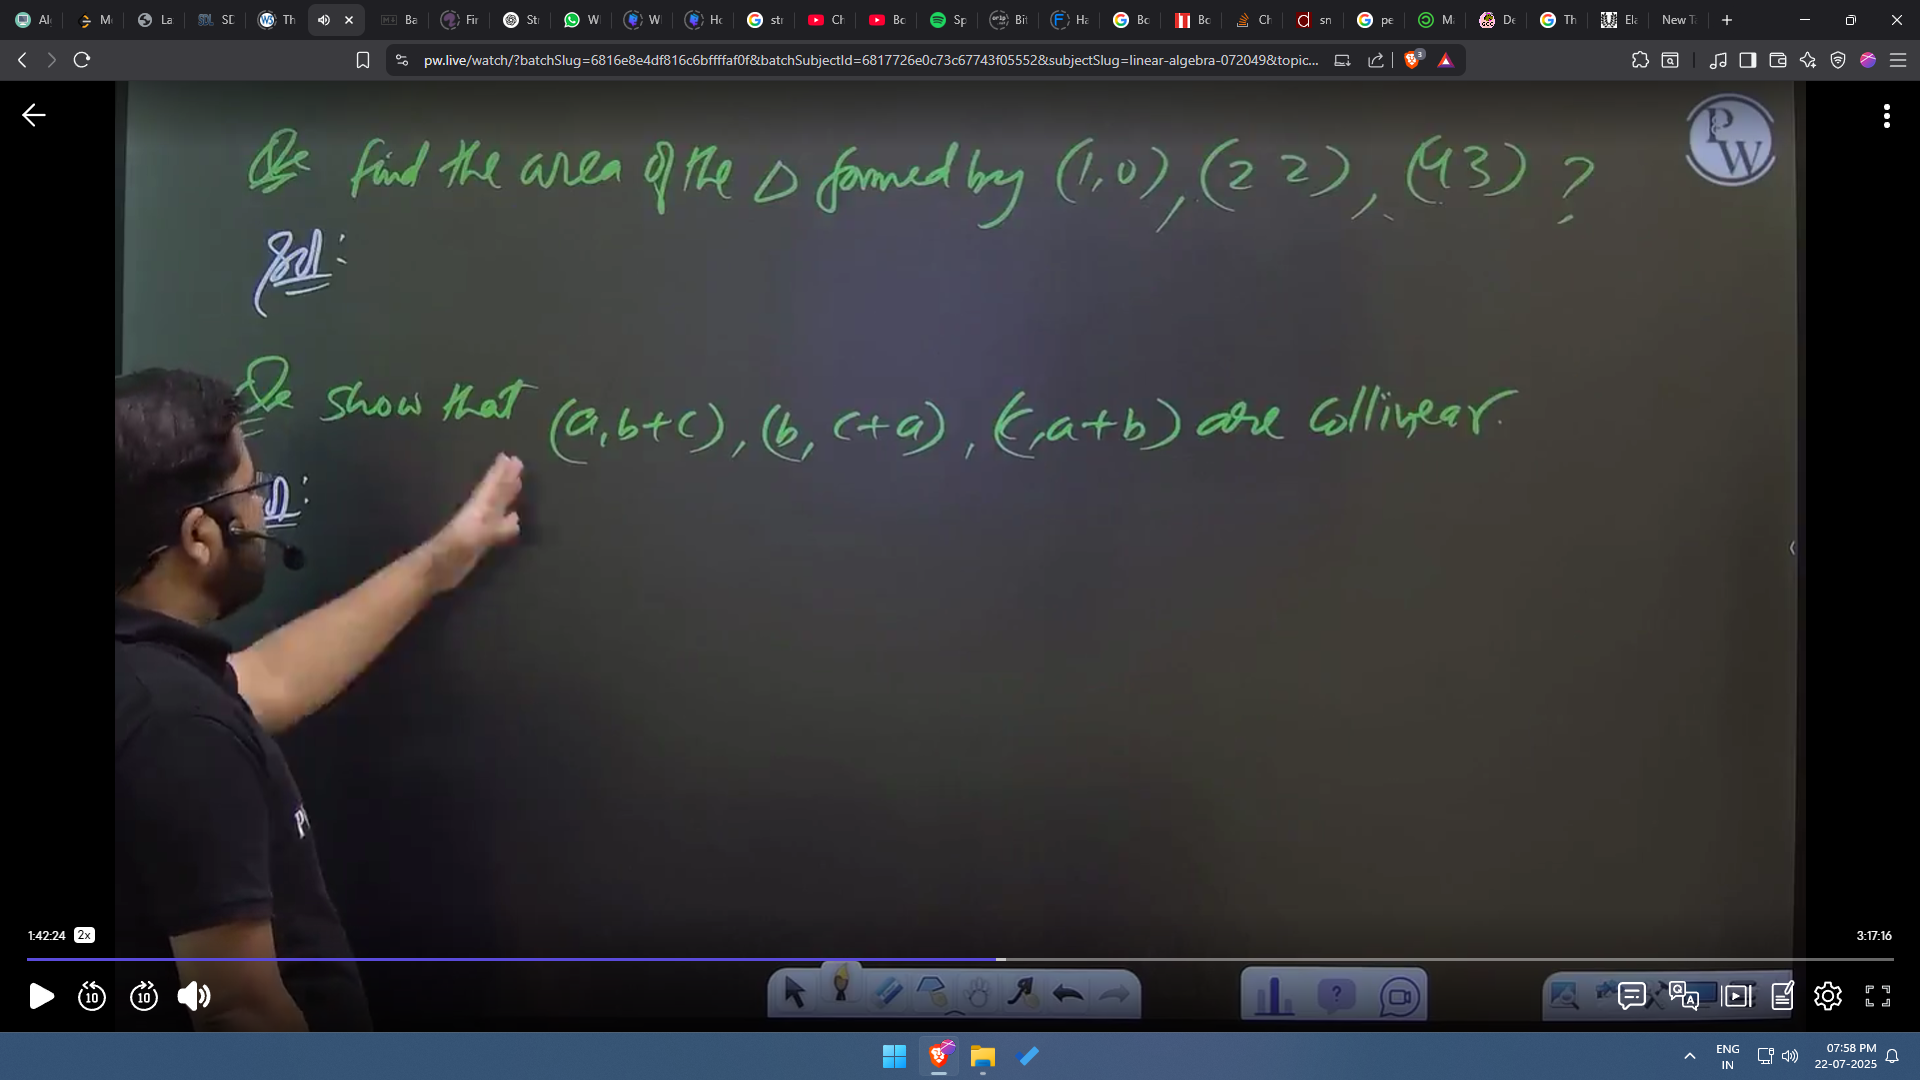 Al
Me
La
SD
Th
Ba
Fir
Str
W
W
Ho
str
Ch
Bo
Sp
Bit
Ha
Bo
Bo
Ch
sn
pe
M
De
Th
Ela
New T
pw.live/watch/?batchSlug=6816e8e4df816c6bffffaf0f&batchSubjectId=6817726e0c73c67743f05552&subjectSlug=linear-algebra-072049&topic...
3
PW
Qe Find the area of the Δ formed by (1,0), (2 2), (4 3) ?
Sol:
Qe show that (a, b+c), (b, c+a), (c, a+b) are collinear.
1:42:24 2x
3:17:16
10 10
ENG
IN
07:58 PM
22-07-2025